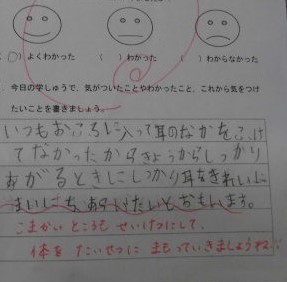 (○)よくわかった ( )わかった ( )わからなかった
今日の学しゅうで、気がついたことやわかったこと、これから気をつけ
たいことを書きましょう。
いつもおふろに入って耳のなかを
てなかったからきょうからしっかり
あがるときにしっかり耳をきれいに
まいにち、あらいたいとおもいます。
こまかいところもせいけつにして、
体をたいせつにまもっていきましょうね。